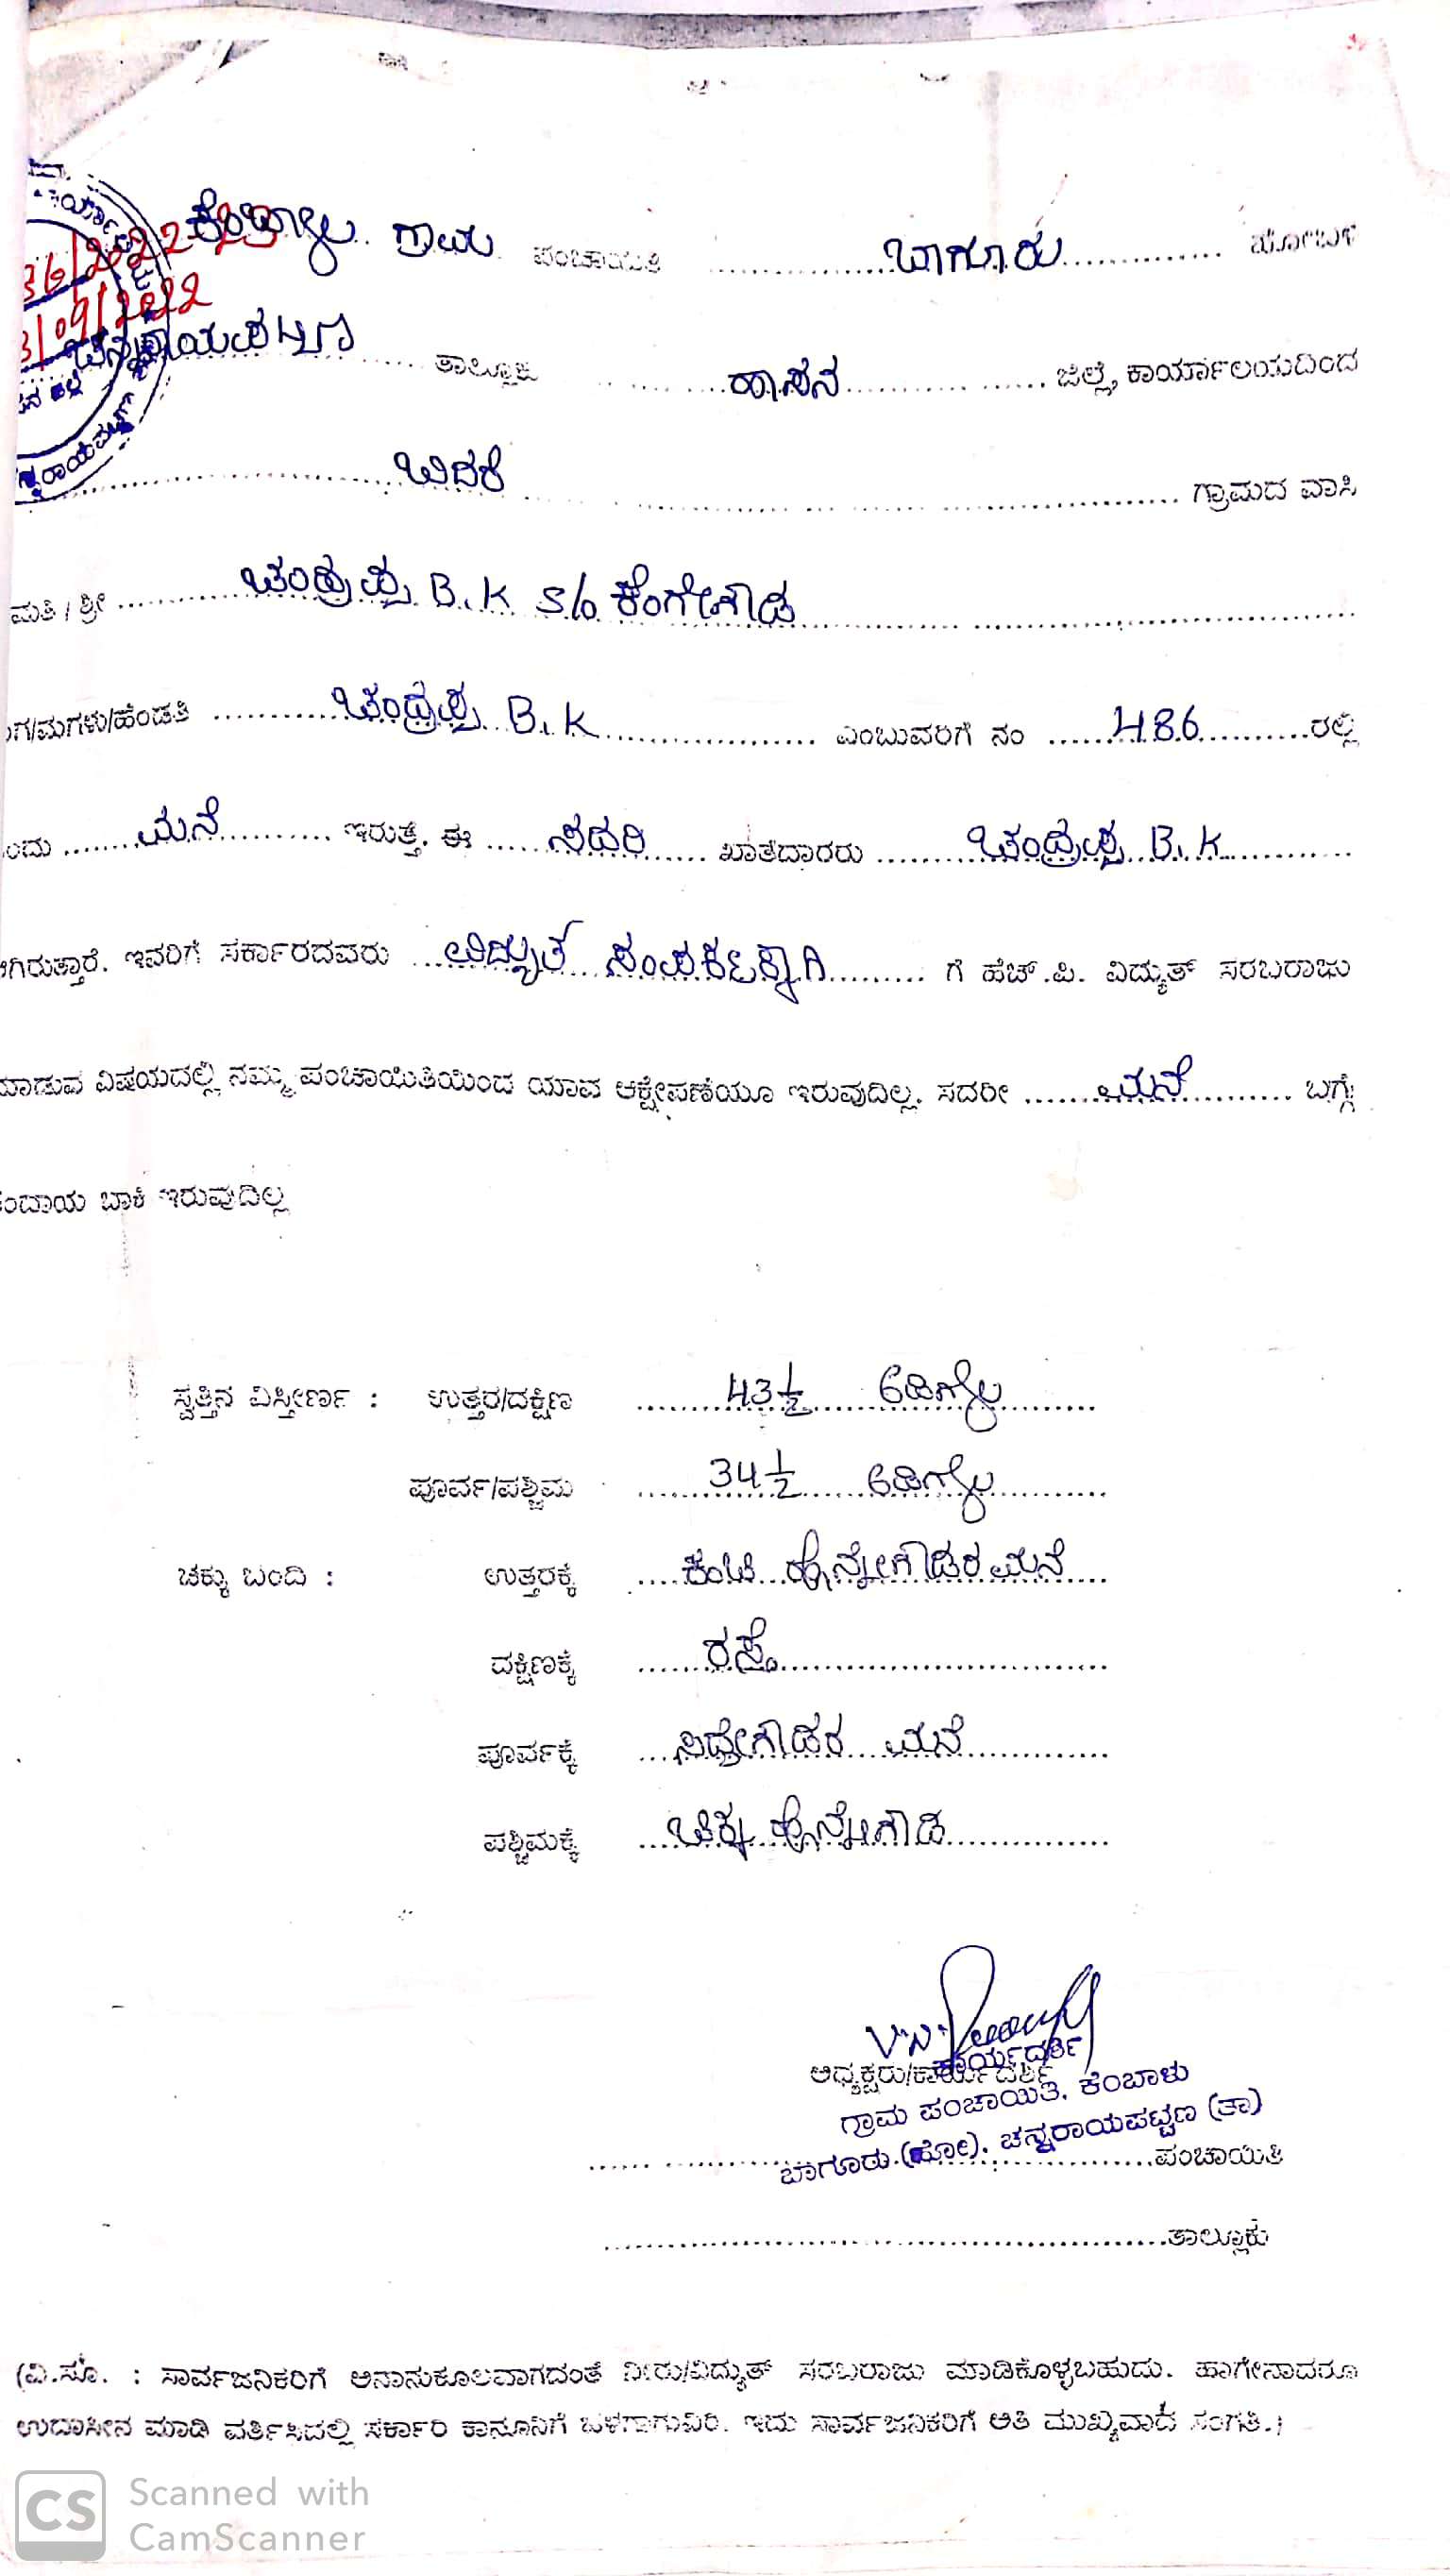 ಕೆಂಬಾಳು ಗ್ರಾಮ ಪಂಚಾಯತಿ ಬಾಗೂರು ಹೋಬಳಿ
36/2022-23
3/09/2022
ಚನ್ನರಾಯಪಟ್ಟಣ ತಾಲ್ಲೂಕು ಹಾಸನ ಜಿಲ್ಲೆ, ಕಾರ್ಯಾಲಯದಿಂದ
ಬಿದರೆ ಗ್ರಾಮದ ವಾಸಿ
ಮತಿ / ಶ್ರೀ ಚಂದ್ರಪ್ಪ B.K S/o ಕೆಂಗೇಗೌಡ
ಗ/ಮಗಳು/ಹೆಂಡತಿ ಚಂದ್ರಪ್ಪ B.K ಎಂಬುವರಿಗೆ ನಂ 486 ರಲ್ಲಿ
ಂದು ಮನೆ ಇರುತ್ತೆ. ಈ ಸದರಿ ಖಾತೆದಾರರು ಚಂದ್ರಪ್ಪ B.K
ಗಿರುತ್ತಾರೆ. ಇವರಿಗೆ ಸರ್ಕಾರದವರು ವಿದ್ಯುತ ಸಂಪರ್ಕಕ್ಕಾಗಿ ಗೆ ಹೆಚ್.ಪಿ. ವಿದ್ಯುತ್ ಸರಬರಾಜು
ಮಾಡುವ ವಿಷಯದಲ್ಲಿ ನಮ್ಮ ಪಂಚಾಯಿತಿಯಿಂದ ಯಾವ ಆಕ್ಷೇಪಣೆಯೂ ಇರುವುದಿಲ್ಲ. ಸದರೀ ಮನೆ ಬಗ್ಗೆ
ಕಂದಾಯ ಬಾಕಿ ಇರುವುದಿಲ್ಲ
ಸ್ವತ್ತಿನ ವಿಸ್ತೀರ್ಣ : ಉತ್ತರ/ದಕ್ಷಿಣ 43½ ಅಡಿಗಳು
ಪೂರ್ವ/ಪಶ್ಚಿಮ 34½ ಅಡಿಗಳು
ಚಕ್ಕು ಬಂದಿ : ಉತ್ತರಕ್ಕೆ ಕೆಂಚ ಹೊನ್ನೇಗೌಡರ ಮನೆ
ದಕ್ಷಿಣಕ್ಕೆ ರಸ್ತೆ
ಪೂರ್ವಕ್ಕೆ ಸಿದ್ದೇಗೌಡರ ಮನೆ
ಪಶ್ಚಿಮಕ್ಕೆ ಚಿಕ್ಕ ಹೊನ್ನೇಗೌಡ
ಕಾರ್ಯದರ್ಶಿ
ಅಧ್ಯಕ್ಷರು/ಕಾರ್ಯದರ್ಶಿ
ಗ್ರಾಮ ಪಂಚಾಯಿತಿ. ಕೆಂಬಾಳು
ಬಾಗೂರು.(ಹೋ). ಚನ್ನರಾಯಪಟ್ಟಣ (ತಾ)
ಪಂಚಾಯಿತಿ
ತಾಲ್ಲೂಕು
(ವಿ.ಸೂ. : ಸಾರ್ವಜನಿಕರಿಗೆ ಅನಾನುಕೂಲವಾಗದಂತೆ ನೀರು/ವಿದ್ಯುತ್ ಸರಬರಾಜು ಮಾಡಿಕೊಳ್ಳಬಹುದು. ಹಾಗೇನಾದರೂ
ಉದಾಸೀನ ಮಾಡಿ ವರ್ತಿಸಿದಲ್ಲಿ ಸರ್ಕಾರಿ ಕಾನೂನಿಗೆ ಒಳಗಾಗುವಿರಿ. ಇದು ಸಾರ್ವಜನಿಕರಿಗೆ ಅತಿ ಮುಖ್ಯವಾದ ಸಂಗತಿ.)
CS Scanned with
CamScanner